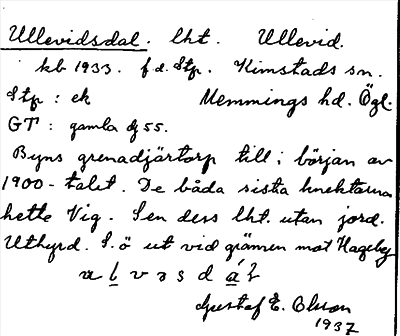 Ullevidsdal. lht. Ullevid.
kb 1933. f.d. Stp. Kimstads sn.
Stp : ek Memmings hd. Ögl.
GT : gamla dj 55.
Byns grenadjärtorp till i början av
1900-talet. De båda sista knektarna
hette Vig. Sen dess lht. utan jord.
Uthyrd. S.ö ut vid gränsen mot Hageby
Gustaf E. Olsson
1937